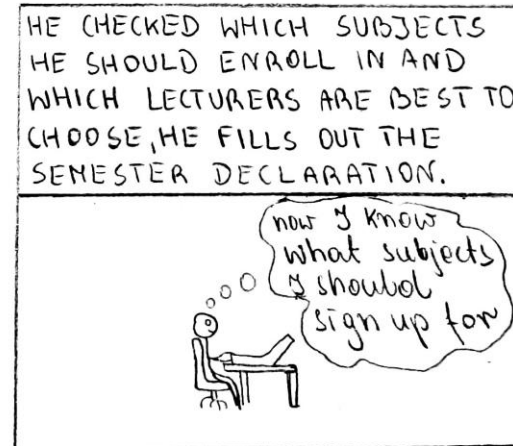 HE CHECKED WHICH SUBJECTS
HE SHOULD ENROLL IN AND
WHICH LECTURERS ARE BEST TO
CHOOSE, HE FILLS OUT THE
SEMESTER DECLARATION.
now I know
what subjects
I should
sign up for